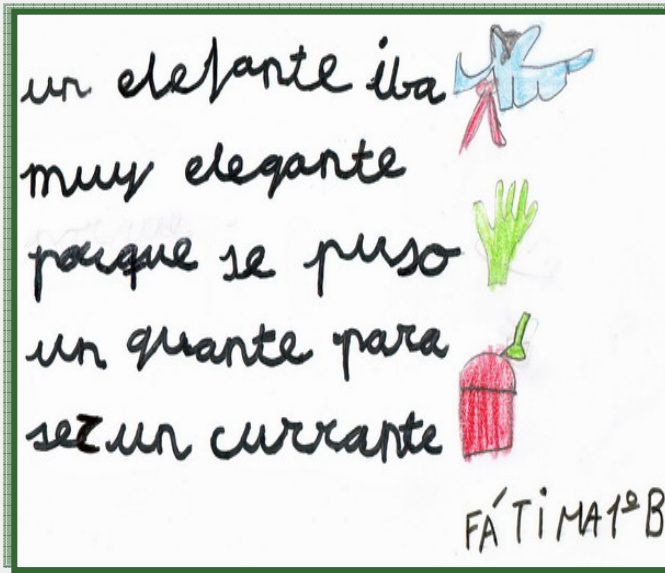 un elefante iba
muy elegante
porque se puso
un guante para
ser un currante
FÁTIMA 1º B